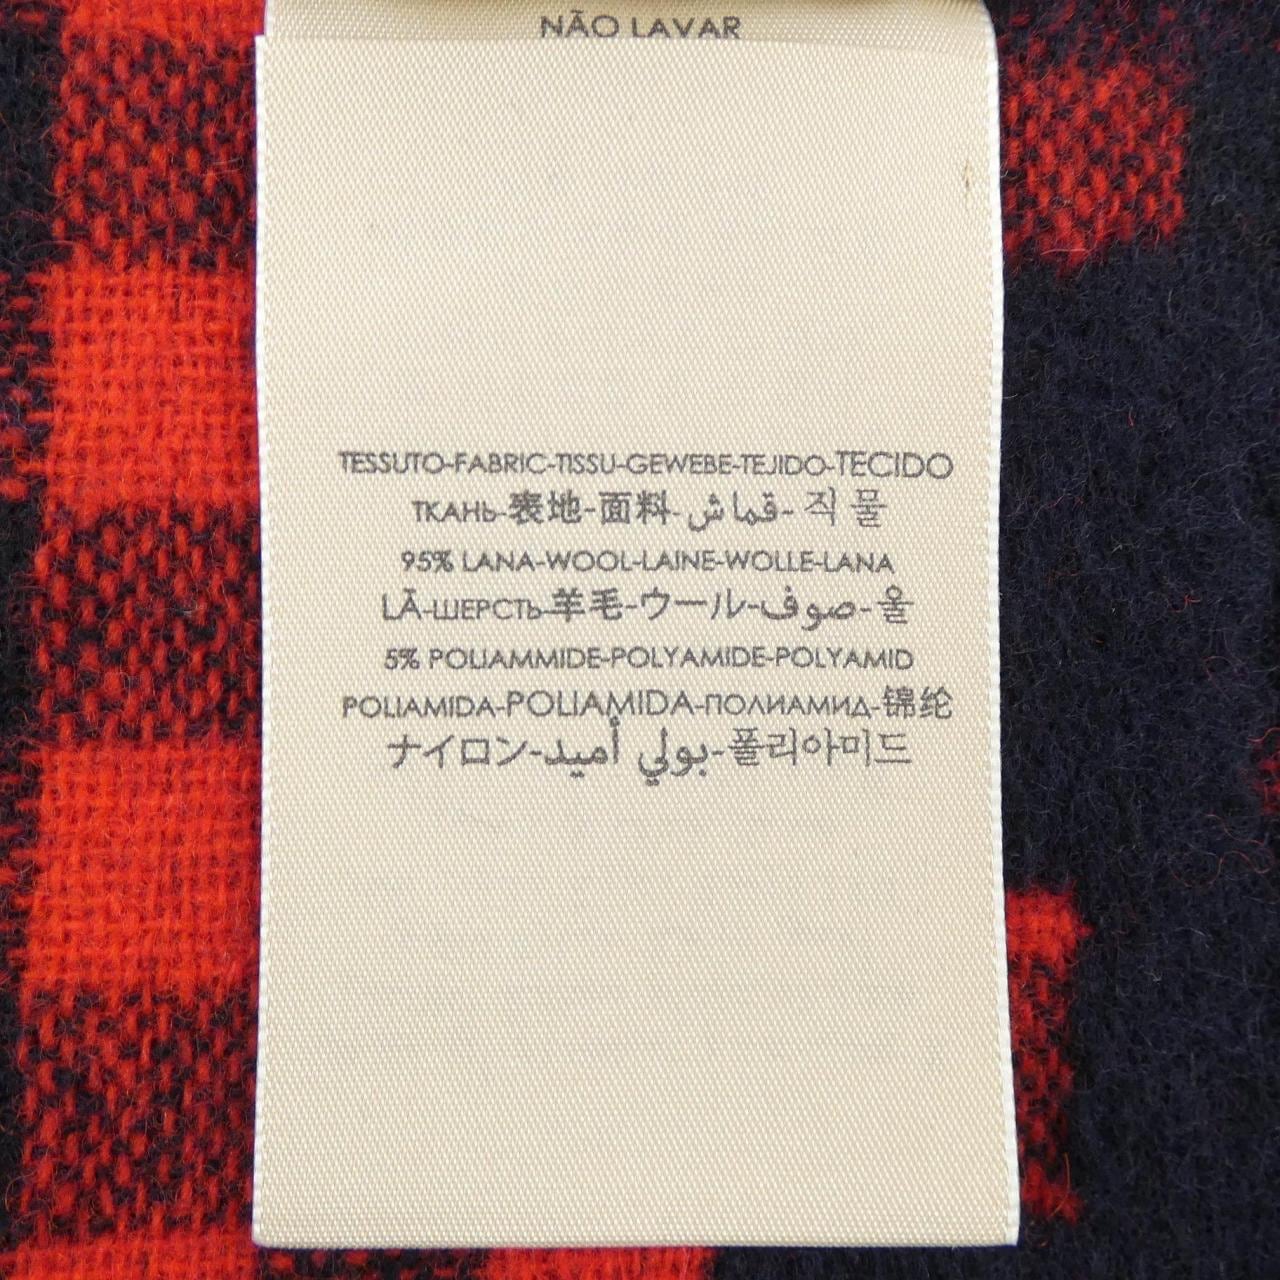 NÃO LAVAR
TESSUTO-FABRIC-TISSU-GEWEBE-TEJIDO-TECIDO
ТКАНЬ-表地-面料-قماش-직물
95% LANA-WOOL-LAINE-WOLLE-LANA
LÃ-ШЕРСТЬ-羊毛-ウール-صوف-울
5% POLIAMMIDE-POLYAMIDE-POLYAMID
POLIAMIDA-POLIAMIDA-ПОЛИАМИД-锦纶
ナイロン-بولي أميد-폴리아미드